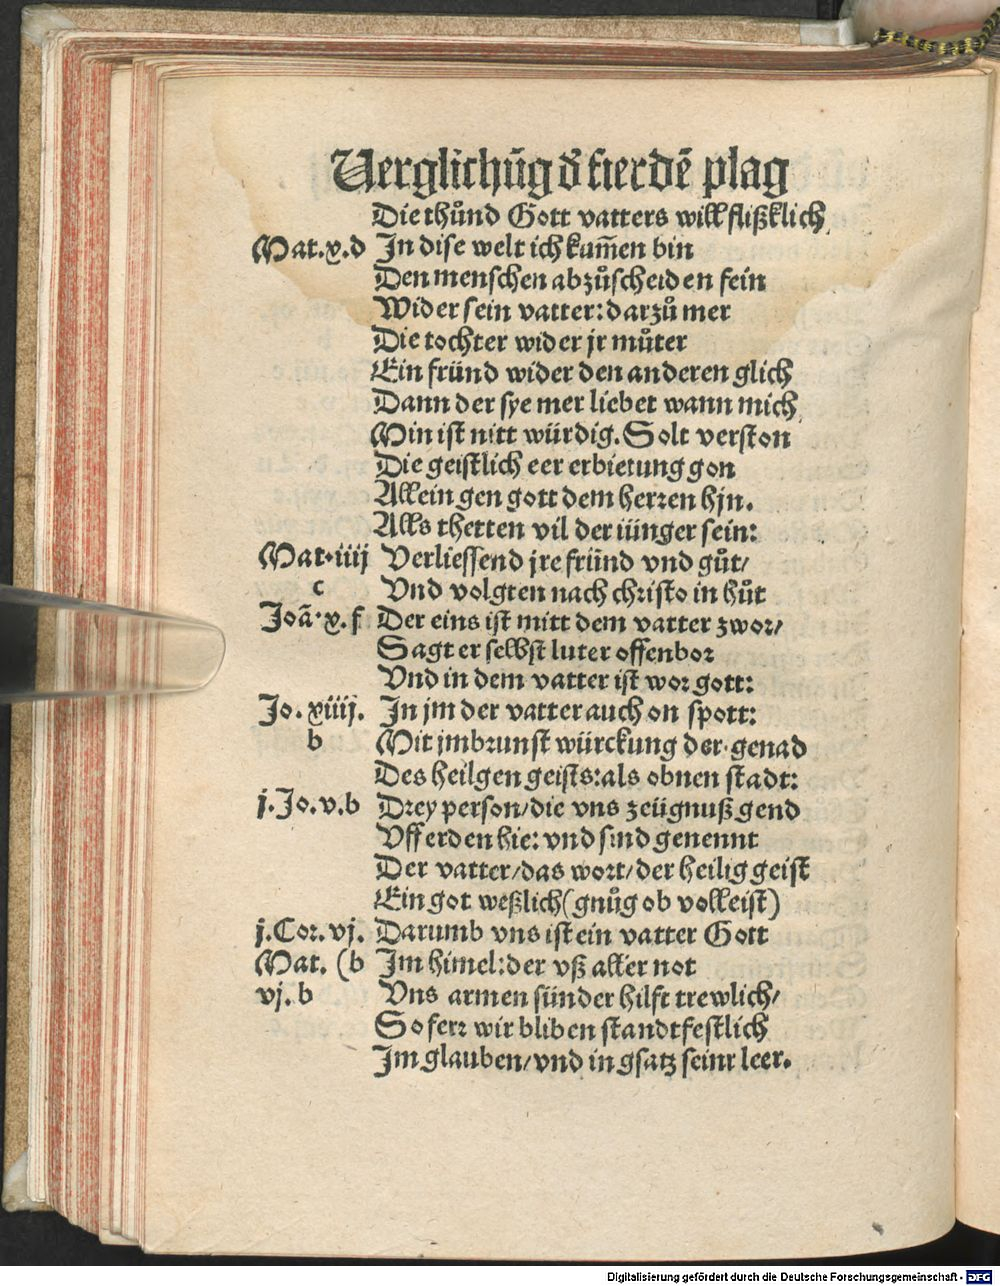 Verglichūg d̄ fierdē plag
Die thůnd Gott vatters will flißklich
Mat.x.d In dise welt ich kum̄en bin
Den menschen abzůscheiden fein
Wider sein vatter: darzů mer
Die tochter wider jr můter
Ein fründ wider den anderen glich
Dann der sye mer liebet wann mich
Min ist nitt würdig. Solt verston
Die geistlich eer erbietung gon
Allein gen gott dem herren hjn.
Alls thetten vil der iünger sein:
Mat.iiij Verliessend jre fründ vnd gůt/
c Vnd volgten nach christo in hůt
Joā.x.f Der eins ist mitt dem vatter zwor/
Sagt er selbst luter offenbor
Vnd in dem vatter ist wor gott:
Jo.xiiij. In jm der vatter auch on spott:
b Mit jmbrunst würckung der genad
Des heilgen geists: als obnen stadt:
j.Jo.v.b Drey person/die vns zeügnuß gend
Vff erden hie: vnd sind genennt
Der vatter/das wort/der heilig geist
Ein got weßlich (gnůg ob volleist)
j.Cor.vj. Darumb vns ist ein vatter Gott
Mat. (b Im himel: der vß aller not
vj.b Vns armen sünder hilft trewlich/
So ferr wir bliben standtfestlich
Im glauben/vnd in gsatz seinr leer.
Digitalisierung gefördert durch die Deutsche Forschungsgemeinschaft - DFG